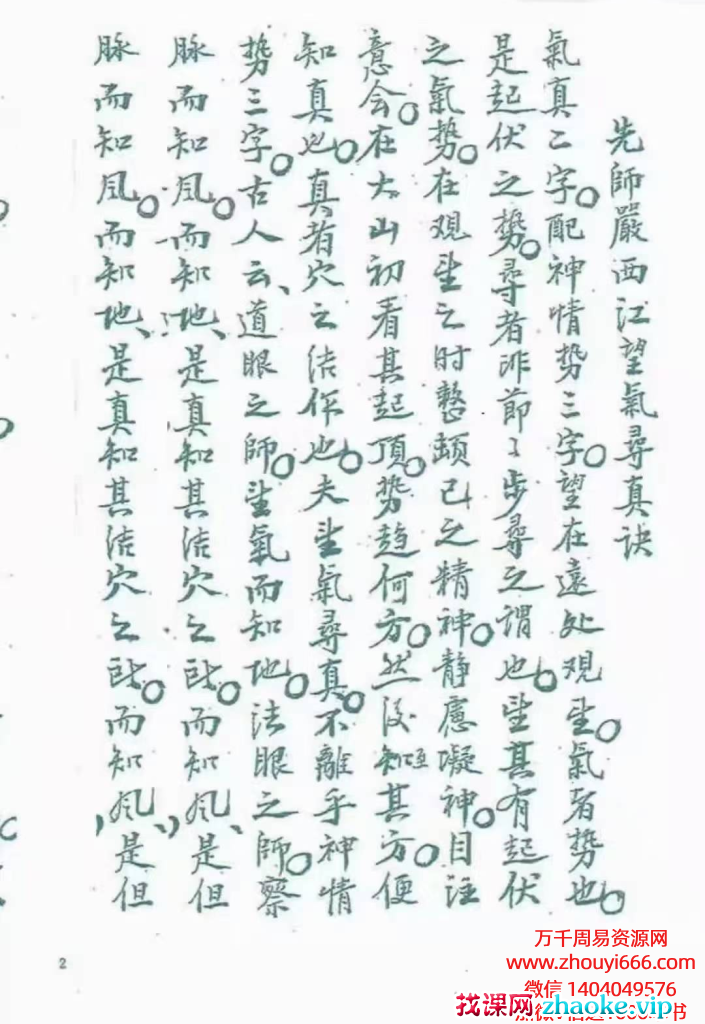 先師嚴西江望氣尋真訣
氣真二字。配神情势三字。望在遠处观望。氣者势也。
是起伏之势。尋者非節々步尋之謂也。望其有起伏
之氣势。在观望之时整頓己之精神。静慮凝神。目注
意会。在大山初看其起頂。势趋何方。然後知至其方。便
知真也。真者穴之结作也。夫望氣尋真。不離乎神情
势三字。古人云、道眼之師。望氣而知地。法眼之師。察
脉而知风。而知地、是真知其结穴之所。而知风、是但
脉而知风。而知地、是真知其结穴之所。而知风、是但
2
万千周易资源网
www.zhouyi666.com
微信 1404049576
找课网zhaoke.vip